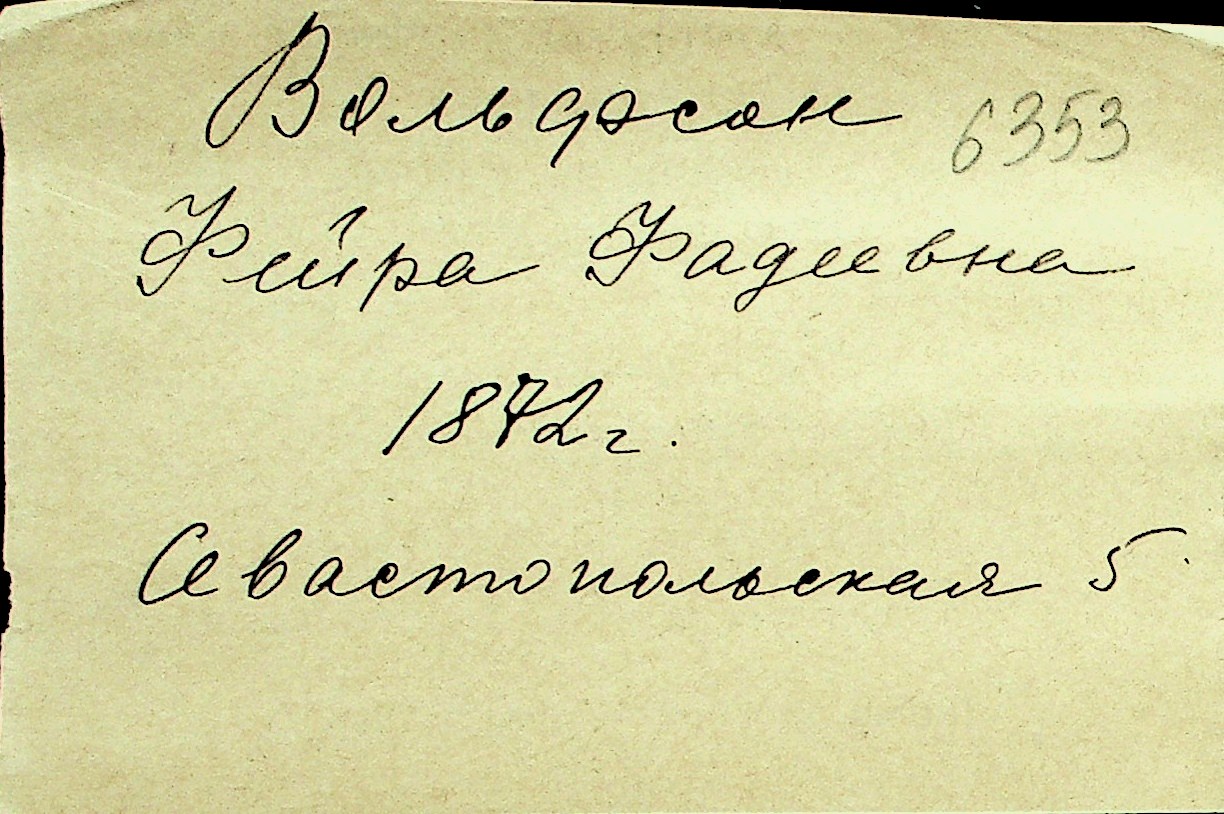 Вольфсон 6353
Фейра Фадеевна
1872 г.
Севастопольская 5